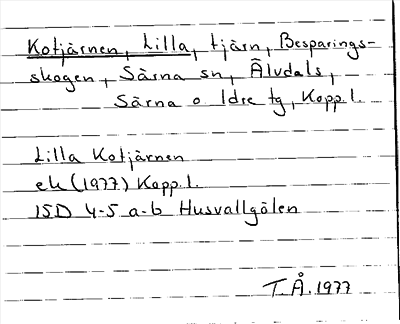 Kotjärnen, Lilla, tjärn, Besparings-
skogen, Särna sn, Älvdals,
Särna o Idre tg, Kopp.l.
Lilla Kotjärnen
ek (1977) Kopp.l.
15D 4-5 a-b Husvallgölen
T.Å. 1977